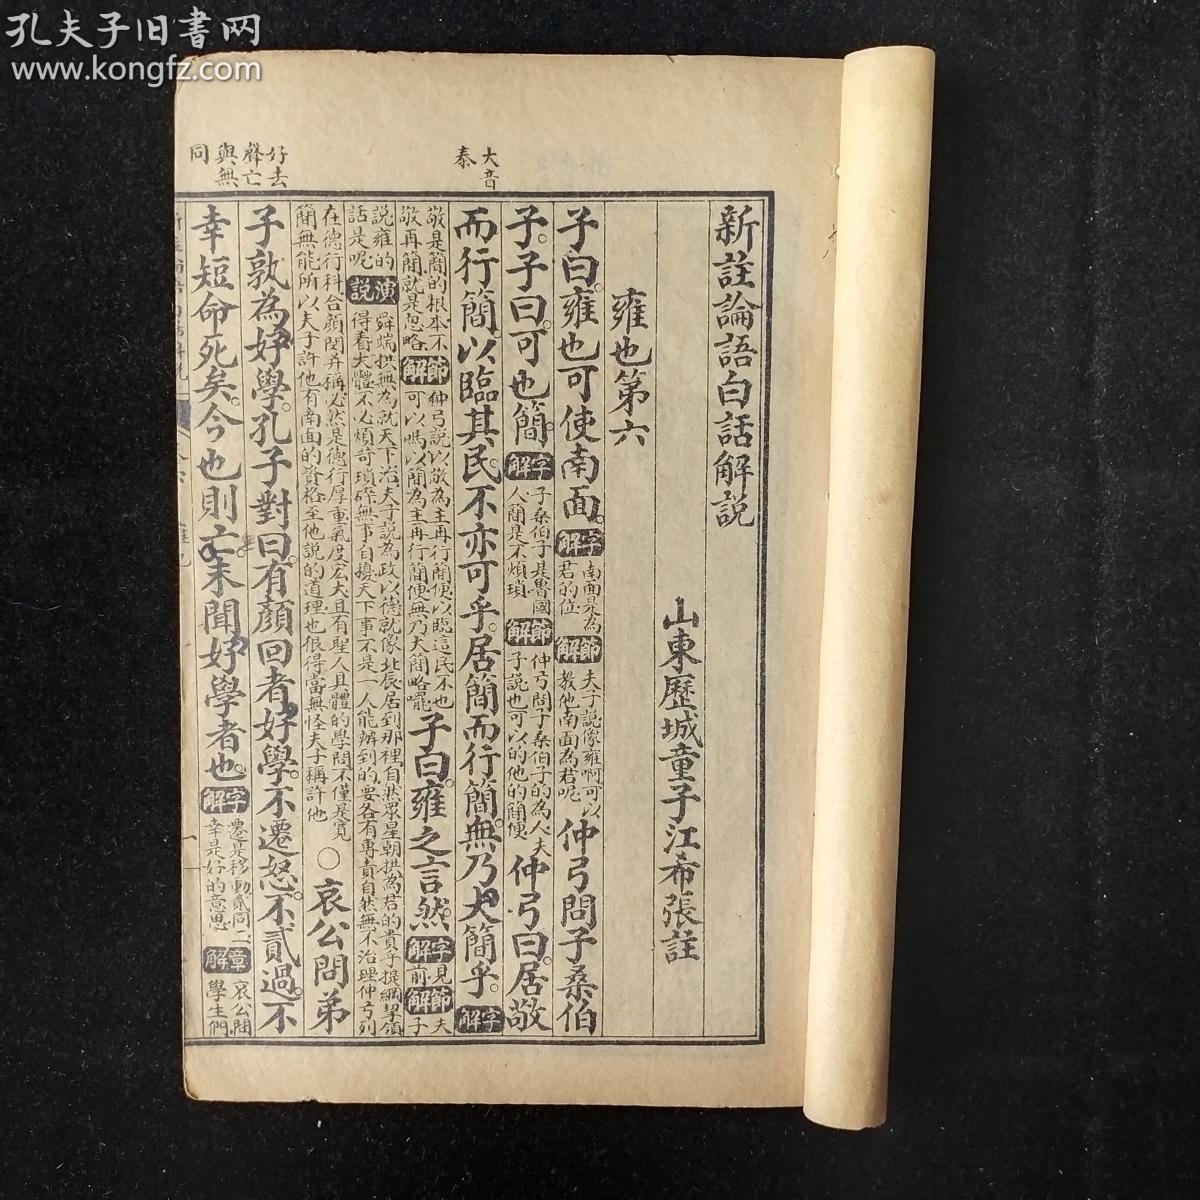 孔夫子旧书网
www.kongfz.com
大音
泰
好去
聲亡
與無
同
新註論語白話解説
山東歷城童子江希張註
雍也第六
子曰雍也可使南面。字解 南面是為君的位 節解 夫子説像雍啊可以教他南面為君呢 仲弓問子桑伯
子。子曰。可也簡。字解 子桑伯子是魯國人簡是不煩瑣 節解 仲弓問子桑伯子的為人夫子説也可以的他的簡便 仲弓曰。居敬
而行簡以臨其民。不亦可乎。居簡而行簡。無乃大簡乎。字解
敬是簡的根本不敬再簡就是忽略 節解 仲弓説以敬為主再行簡便以臨這民不也可以嗎以簡為主再行簡便無乃大簡略嚦 子曰。雍之言然。字解 見前 節解 夫子
説雍的話是呢 演説 舜端拱無為就天下治夫子説為政以德就像北辰居到那裡自然眾星朝拱為君的貴乎提綱挈領得着大體不必煩苛瑣碎無事自擾天下事不是一人能辦到的要各有專責自然無不治理仲弓列
在德行科合顏閔并稱必然是德行厚重氣度宏大且有聖人具體的學問不僅是寬簡無能所以夫子許他有南面的資格至他説的道理也很得當無怪夫子稱許他 ○ 哀公問弟
子孰為好學。孔子對曰。有顏回者好學。不遷怒。不貳過。不
幸短命死矣。今也則亡。未聞好學者也。字解 遷是移動貳同二幸是好的意思 章解 哀公問學生們